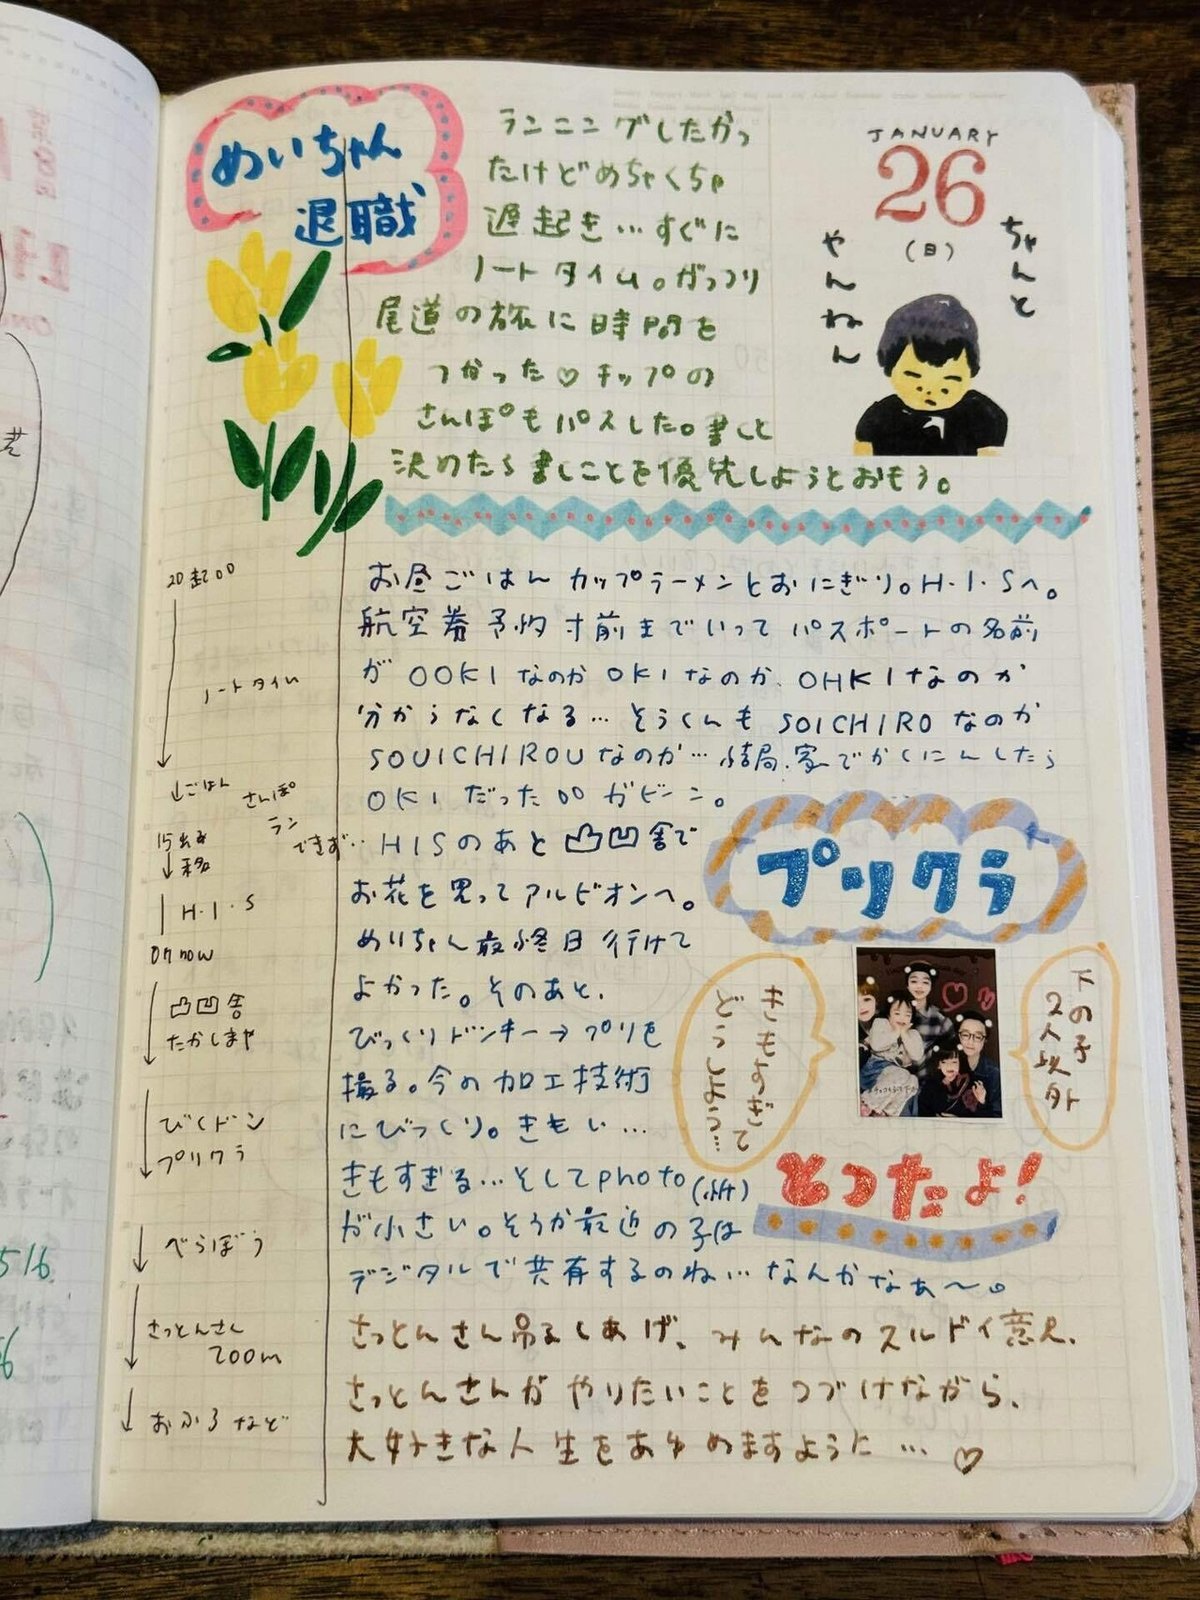 めいちゃん
退職
ランニングしたかっ
たけどめちゃくちゃ
遅起き…すぐに
ノートタイム。がっつり
尾道の旅に時間を
つかった♡チップの
さんぽもパスした。書くと
決めたら書くことを優先しようとおもう。
JANUARY
26
(日)
ちゃんと
やんねん
お昼ごはんカップラーメンとおにぎり。H・I・Sへ。
航空券予約寸前までいってパスポートの名前
が OOKIなのかOKIなのか、OHKIなのか
分からなくなる…そうくんもSOICHIROなのか
SOUICHIROUなのか…結局、家でかくにんしたら
OKIだった!!ガビーン。
HISのあと凸凹舎で
お花を買ってアルビオンへ。
めいちゃん最終日行けて
よかった。そのあと、
びっくりドンキー→プリを
撮る。今の加工技術
にびっくり。きもい…
きもすぎる…そしてphoto
が小さい。そうか最近の子は
デジタルで共有するのね…なんかなぁ〜。
さっとんさん吊るしあげ、みんなのスルドイ意見、
さっとんさんがやりたいことをつづけながら、
大好きな人生をあゆめますように…♡
プリクラ
きもすぎて
どうしよう…
下の子
2人以外
とったよ!
ノートタイム
↓ごはん
さんぽ
ラン
できず…
H・I・S
凸凹舎
たかしまや
びくドン
プリクラ
べらぼう
さっとんさん
おふろなど